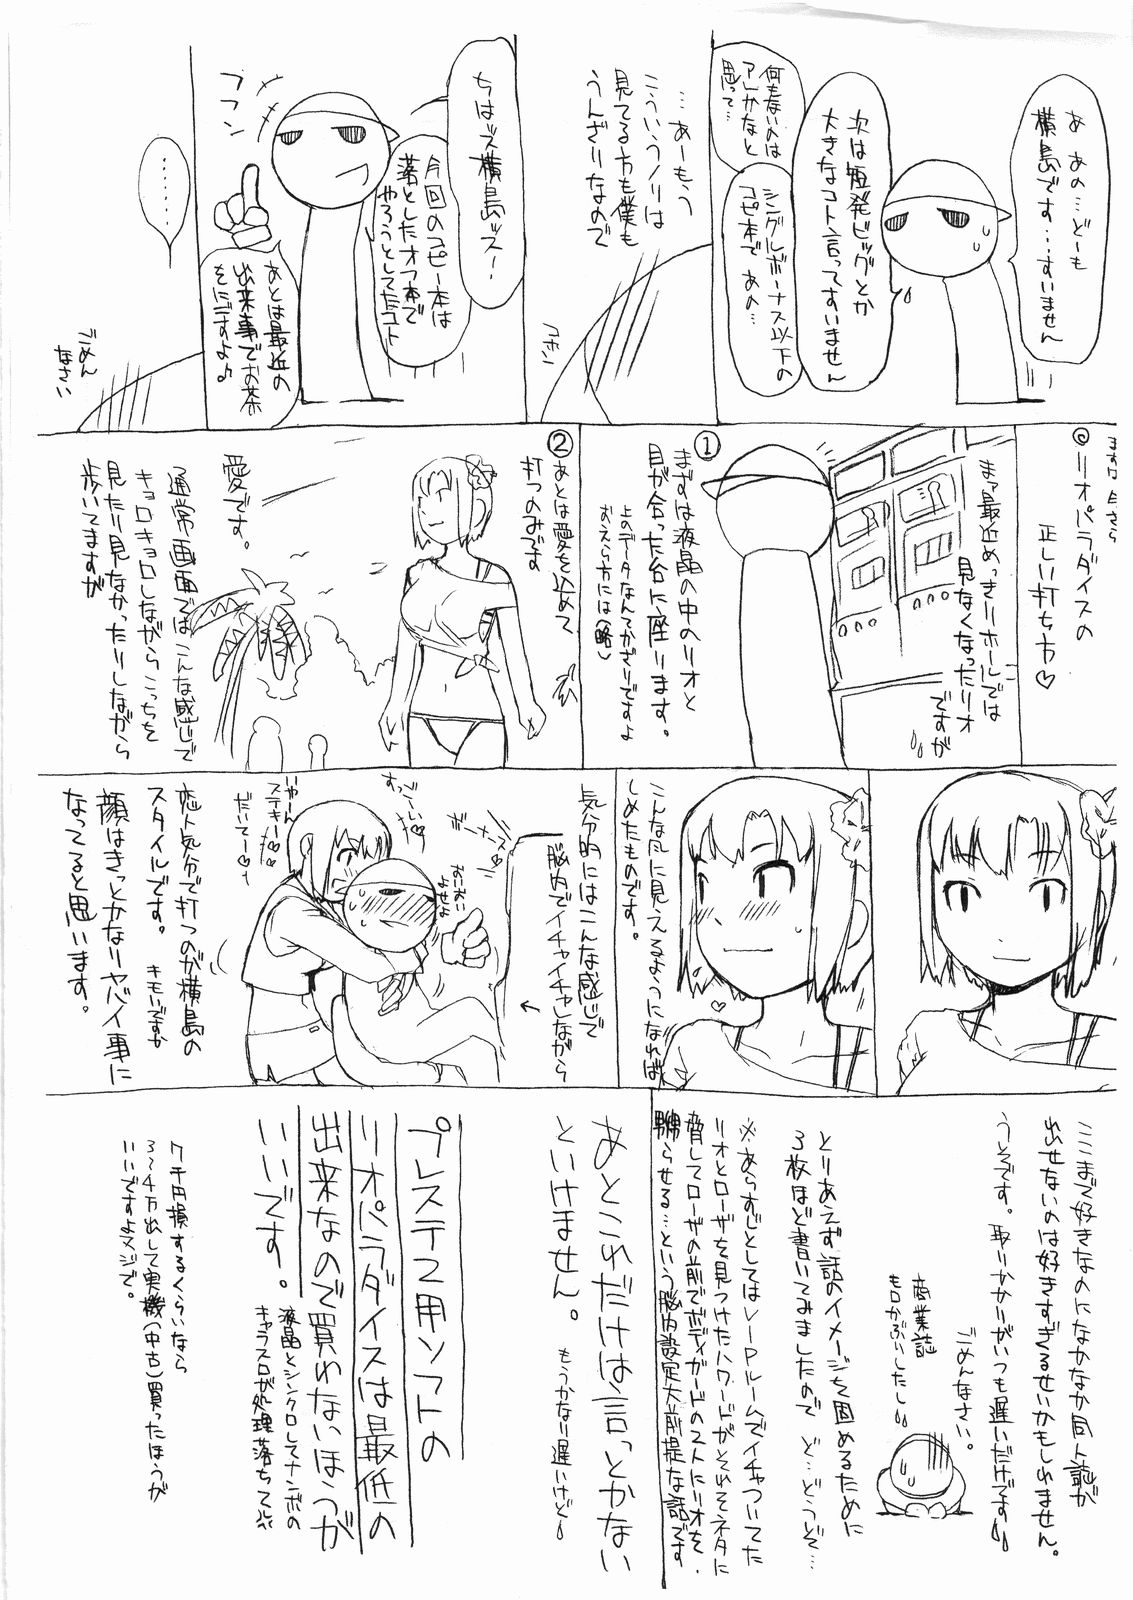 あ あの…どーも
横島です…すいません
次は短発ビッグとか
大きなコト言ってすいません
何もないのは
アレかなと
思って…
シングルボーナス以下の
コピ本で あの…
…あーもう
こういうノリは
見てる方も僕も
うんざりなので
コホン
ちはッス横島ッスー
今回のコピー本は
落としたオフ本で
やろうとしてたコト
フフン
あとは最近の
出来事でお茶
をにごすよ♪
………
ごめん
なさい
まずは今さら
◎リオパラダイスの
正しい打ち方♡
まァ最近めっきりホールでは
見なくなったリオ
ですが
①
まずは液晶の中のリオと
目が合った台に座ります。
上のデータなんてかざりですよ
おえら方には(略)
②
あとは愛を込めて
打つのみです
愛です。
通常画面ではこんな感じで
キョロキョロしながらこっちを
見たり見なかったりしながら
歩いてますが
こんな風に見えるようになれば
しめたものです。
気分的にはこんな感じで
脳内でイチャイチャしながら
ボーナスー
すっごーいー
いやーん
ステキー
だいてー
恋人気分で打つのが横島の
スタイルです。
キモいですか
顔はきっとかなりヤバイ事に
なってると思います。
ここまで好きなのになかなか同人誌が
出せないのは好きすぎるせいかもしれません。
うそです。取りかかりがいつも遅いだけです
ごめんなさい。
商業誌
もロかぶりしたし
とりあえず話のイメージを固めるために
3枚ほど書いてみましたので ど…どうぞ…
※あらすじとしてはVIPルームでイチャついてた
リオとローザを見つけたハワードがそれをネタに
脅してローザの前でボディガードのストにリオを
嬲らせる…という脳内設定大前提な話です
あとこれだけは言っとかない
といけません。
もうかなり遅いけど
プレステ2用ソフトの
リオパラダイスは最低の
出来なので買わないほうが
いいです。
液晶とシンクロしてナンボの
キャラスロが処理落ちて
ウン千円損するくらいなら
3〜4万出して実機(中古)買ったほうが
いいですよマジで。